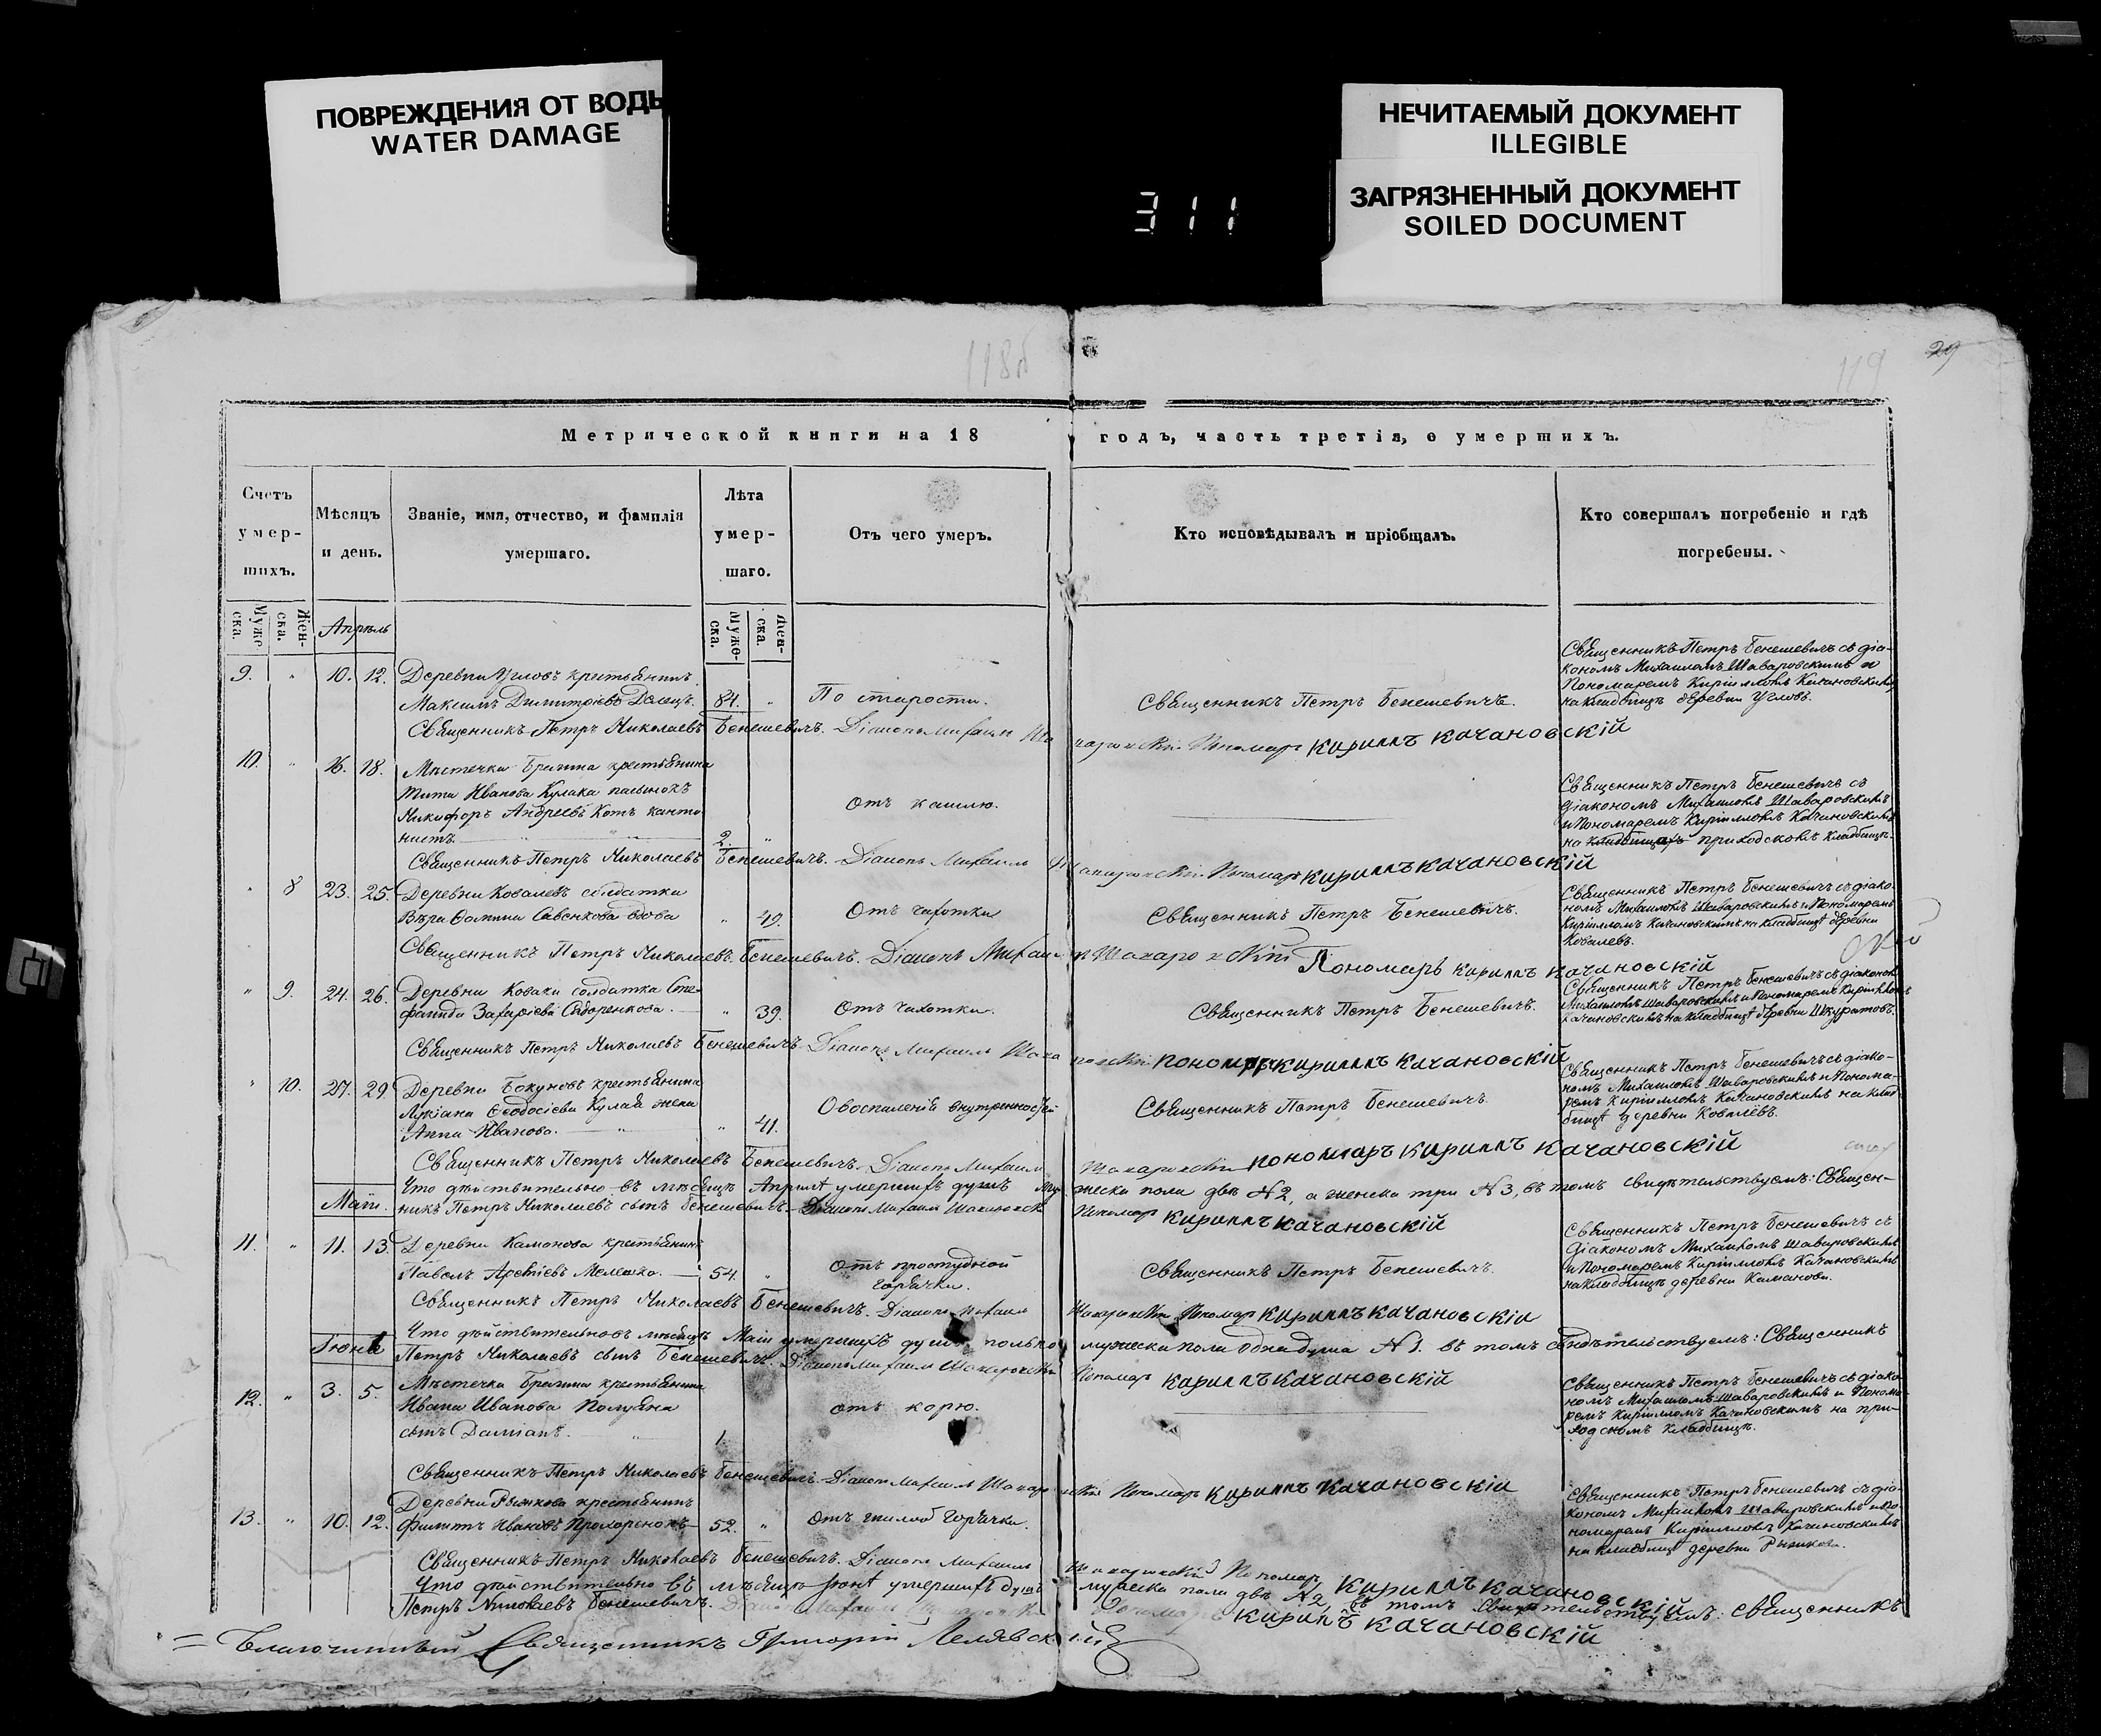 ПОВРЕЖДЕНИЯ ОТ ВОДЫ
WATER DAMAGE
НЕЧИТАЕМЫЙ ДОКУМЕНТ
ILLEGIBLE
ЗАГРЯЗНЕННЫЙ ДОКУМЕНТ
SOILED DOCUMENT
311
118об
119
29
Метрической книги на 18 годъ, часть третія, о умершихъ.
Счетъ умер-шихъ.
Мѣсяцъ и день.
Званіе, имя, отчество, и фамилія умершаго.
Лѣта умер-шаго.
Отъ чего умеръ.
Кто исповѣдывалъ и пріобщалъ.
Кто совершалъ погребеніе и гдѣ погребены.
Муже ска.
Жен-ска.
Апрѣль
Муже-ска.
Жен-ска.
9. " 10. 12. Деревни Угловъ крестьянинъ
Максимъ Димитріевъ 84. " По старости.
Священникъ Петръ Бенешевичъ.
Священникъ Петръ Бенешевичъ съ діа-
кономъ Михаиломъ Шаваровскимъ и
Пономаремъ Кирилломъ Качановскимъ
на кладбищѣ деревни Угловъ.
Священникъ Петръ Николаевъ Бенешевичъ. Діаконъ Михаилъ Пономарь Кириллъ Качановскій
10. " 16. 18. Мѣстечка Брагина крестьянина
Тита Иванова Кулака пасынокъ
Никифоръ Андреевъ Котъ канто
нистъ. 2. " Отъ кашлю.
Священникъ Петръ Бенешевичъ съ
діакономъ Михаиломъ Шаваровскимъ
и Пономаремъ Кирилломъ Качановскимъ
на кладбищахъ приходскомъ кладбищѣ.
Священникъ Петръ Николаевъ Бенешевичъ. Діаконъ Михаилъ Пономарь Кириллъ Качановскій
" 8 23. 25. Деревни Ковалевъ солдатка
Вѣра Фомина Савенкова вдова " 49. Отъ чахотки
Священникъ Петръ Бенешевичъ.
Священникъ Петръ Бенешевичъ съ діако-
номъ Михаиломъ Шаваровскимъ и Пономаремъ
Кирилломъ Качановскимъ на кладбищѣ деревни
Ковалевъ.
Священникъ Петръ Николаевъ Бенешевичъ. Діаконъ Михаилъ Пономарь Кириллъ Качановскій
" 9. 24. 26. Деревни Коваки солдатка Сте-
фанида Захаріева Сидоренкова. " 39. Отъ чахотки.
Священникъ Петръ Бенешевичъ.
Священникъ Петръ Бенешевичъ съ діакономъ
Михаиломъ Шаваровскимъ и Пономаремъ Кирилломъ
Качановскимъ на кладбищѣ деревни Шкуратовъ.
Священникъ Петръ Николаевъ Бенешевичъ. Діаконъ Михаилъ Пономарь Кириллъ Качановскій
" 10. 27. 29 Деревни крестьянина
Лукіана Ѳеодосіева Кулая жена
Анна Иванова. " 41. О воспаленія внутренностей
Священникъ Петръ Бенешевичъ.
Священникъ Петръ Бенешевичъ съ діако-
номъ Михаиломъ Шаваровскимъ и Понома-
ремъ Кирилломъ Качановскимъ на клад-
бищѣ деревни Ковалевъ.
Священникъ Петръ Николаевъ Бенешевичъ. Діаконъ Михаилъ Пономарь Кириллъ Качановскій
Что дѣйствительно въ мѣсяцѣ Априлѣ умершихъ душъ мужеска пола двѣ №2, а женска три №3, въ томъ свидѣтельствуемъ: Священ-
никъ Петръ Николаевъ сынъ Бенешевичъ. Діаконъ Михаилъ Пономарь Кириллъ Качановскій
Маій.
11. " 11. 13. Деревни Каманова крестьянинъ
Павелъ Мелешко. 54. " Отъ простудной
горячки.
Священникъ Петръ Бенешевичъ.
Священникъ Петръ Бенешевичъ съ
діакономъ Михаиломъ Шаваровскимъ
и Пономаремъ Кирилломъ Качановскимъ
на кладбищѣ деревни Каманова.
Священникъ Петръ Николаевъ Бенешевичъ. Діаконъ Михаилъ Пономарь Кириллъ Качановскій
Что дѣйствительно въ мѣсяцѣ Маіи умершихъ душъ только мужеска пола одна душа №1. въ томъ свидѣтельствуемъ: Священникъ
Петръ Николаевъ сынъ Бенешевичъ. Діаконъ Михаилъ Пономарь Кириллъ Качановскій
Іюнь
12. " 3. 5. Мѣстечка Брагина крестьянина
Ивана Иванова
сынъ Даміанъ. 1. отъ корю.
Священникъ Петръ Бенешевичъ съ діако-
номъ Михаиломъ Шаваровскимъ и Понома-
ремъ Кирилломъ Качановскимъ на при-
ходскомъ кладбищѣ.
Священникъ Петръ Николаевъ Бенешевичъ. Діаконъ Михаилъ Пономарь Кириллъ Качановскій
13. " 10. 12. Деревни Рыжкова крестьянинъ
Филиппъ Ивановъ Прохоренокъ 52. " Отъ гнилой горячки.
Священникъ Петръ Бенешевичъ съ діа-
кономъ Михаиломъ Шаваровскимъ и По-
номаремъ Кирилломъ Качановскимъ
на кладбищѣ деревни Рыжкова.
Священникъ Петръ Николаевъ Бенешевичъ. Діаконъ Михаилъ Пономарь Кириллъ Качановскій
Что дѣйствительно въ мѣсяцѣ Іюнѣ умершихъ душъ мужеска пола двѣ №2, въ томъ свидѣтельствуемъ: Священникъ
Петръ Николаевъ Бенешевичъ. Діаконъ Михаилъ Пономарь Кириллъ Качановскій
Благочинный Священникъ Григорій